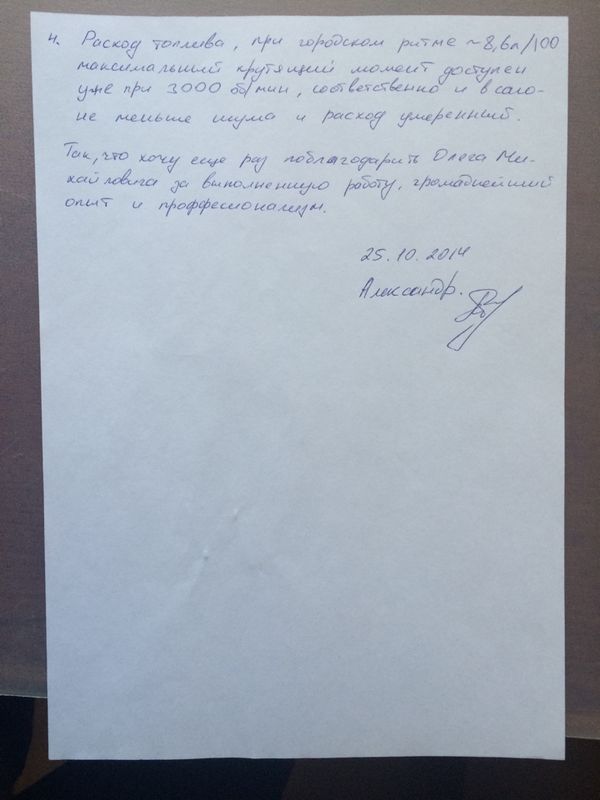 4. Расход топлива, при городском ритме ~8,6л/100
максимальный крутящий момент доступен
уже при 3000 об/мин, соответственно и в сало-
не меньше шума и расход умеренный.
Так, что хочу еще раз поблагодарить Олега Ми-
хайловича за выполненную работу, громаднейший
опыт и проффессионализм.
25.10.2014
Александр.